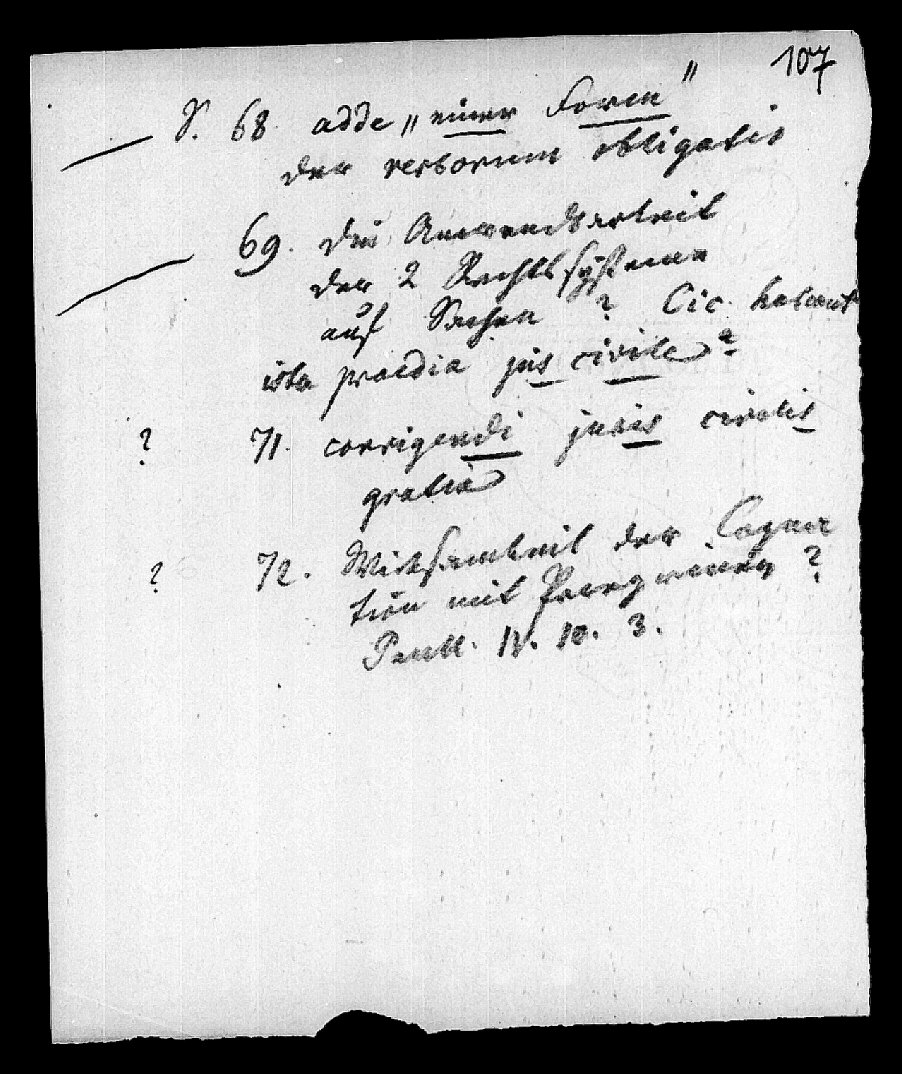 107
S. 68 adde „einer Form"
der verborum obligatio
69. Die Anwendbarkeit
der 2 Rechtssysteme
auf Sachen? Cic. habeant
ista praedia jus civile?
? 71. corrigendi juris civilis
gratia
? 72. Wirksamkeit der Cogna
tion mit Peregrinen?
Paull. IV. 10. 3.